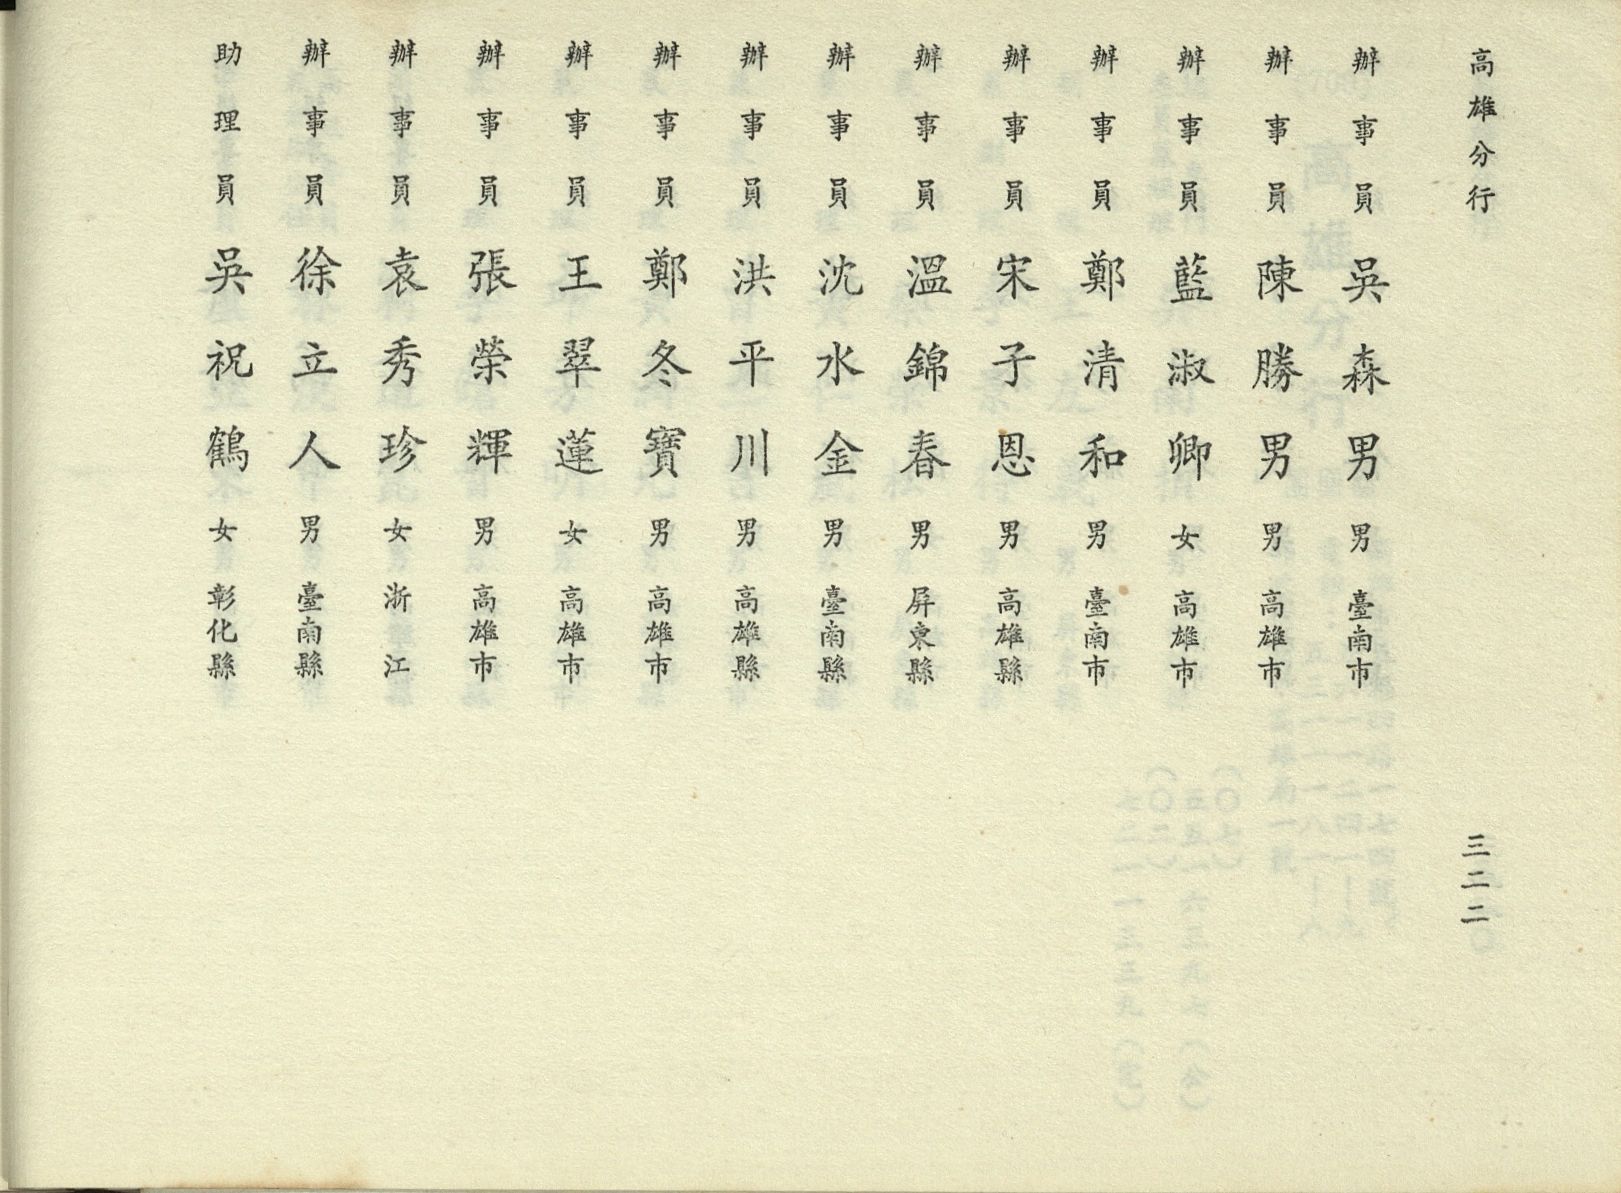 高雄分行
三二二
辦事員 吳森男 男 臺南市
辦事員 陳勝男 男 高雄市
辦事員 藍淑卿 女 高雄市
辦事員 鄭清和 男 臺南市
辦事員 宋子恩 男 高雄縣
辦事員 溫錦春 男 屏東縣
辦事員 沈水金 男 臺南縣
辦事員 洪平川 男 高雄縣
辦事員 鄭冬寶 男 高雄市
辦事員 王翠蓮 女 高雄市
辦事員 張榮輝 男 高雄市
辦事員 袁秀珍 女 浙江
辦事員 徐立人 男 臺南縣
助理員 吳祝鶴 女 彰化縣